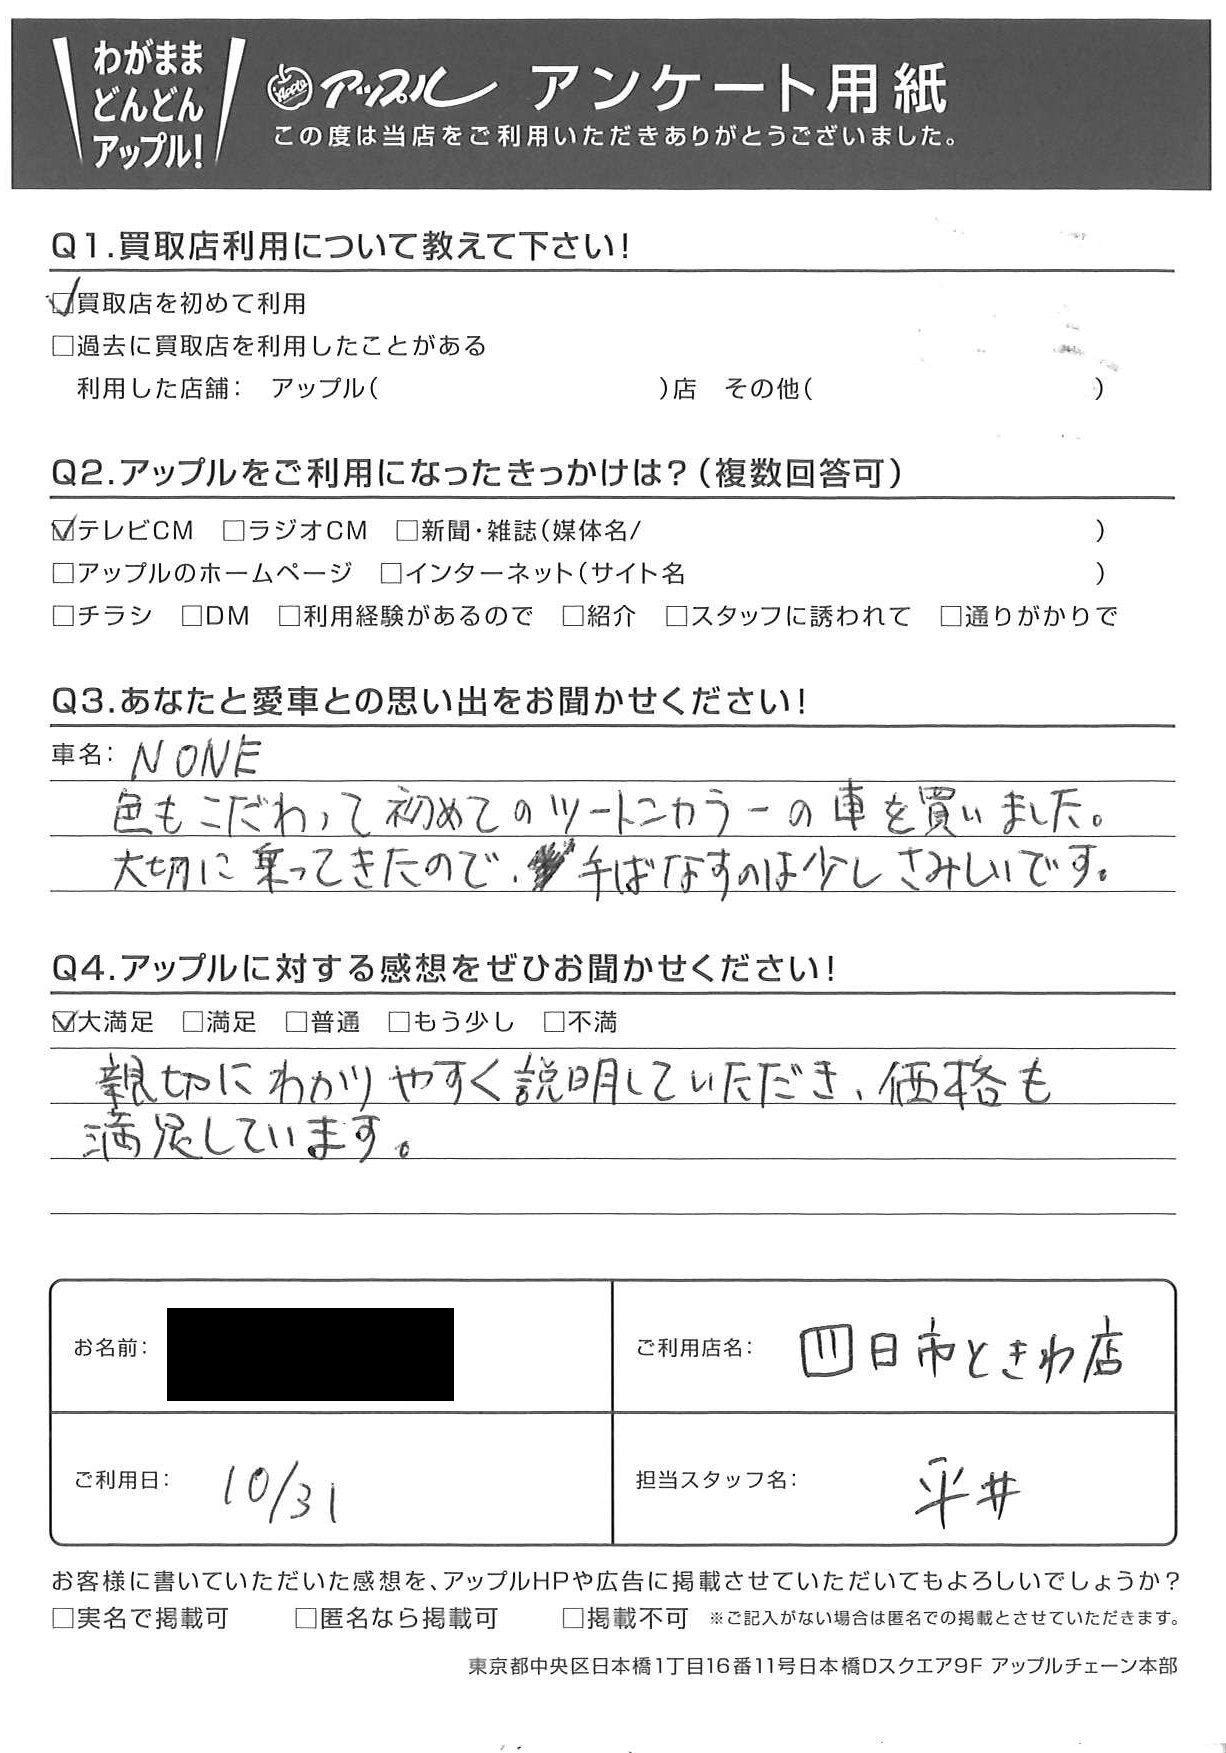 わがまま
どんどん
アップル!
Apple アップル アンケート用紙
この度は当店をご利用いただきありがとうございました。
Q1.買取店利用について教えて下さい!
☑買取店を初めて利用
□過去に買取店を利用したことがある
利用した店舗: アップル( )店 その他( )
Q2.アップルをご利用になったきっかけは?(複数回答可)
☑テレビCM □ラジオCM □新聞・雑誌(媒体名/ )
□アップルのホームページ □インターネット(サイト名 )
□チラシ □DM □利用経験があるので □紹介 □スタッフに誘われて □通りがかりで
Q3.あなたと愛車との思い出をお聞かせください!
車名: NONE
色もこだわって初めてのツートンカラーの車を買いました。
大切に乗ってきたので、手ばなすのは少しさみしいです。
Q4.アップルに対する感想をぜひお聞かせください!
☑大満足 □満足 □普通 □もう少し □不満
親切にわかりやすく説明していただき、価格も
満足しています。
お名前:
ご利用店名: 四日市ときわ店
ご利用日: 10/31
担当スタッフ名: 平井
お客様に書いていただいた感想を、アップルHPや広告に掲載させていただいてもよろしいでしょうか?
□実名で掲載可 □匿名なら掲載可 □掲載不可 ※ご記入がない場合は匿名での掲載とさせていただきます。
東京都中央区日本橋1丁目16番11号日本橋Dスクエア9F アップルチェーン本部